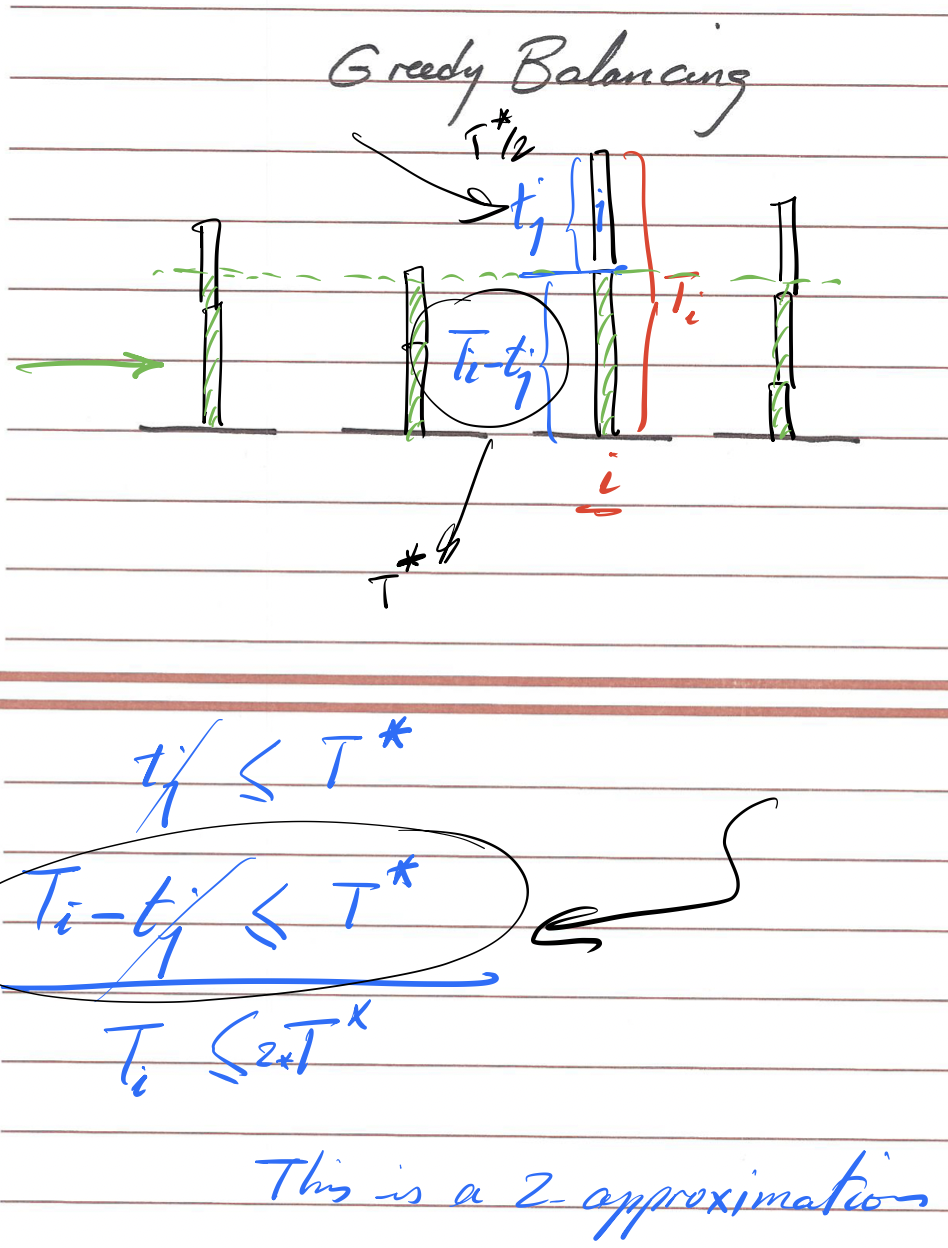 Greedy Balancing
T*/2
tj
j
Ti
Ti-tj
i
T*
tj ≤ T*
Ti-tj ≤ T*
Ti ≤ 2*T*
This is a 2-approximation